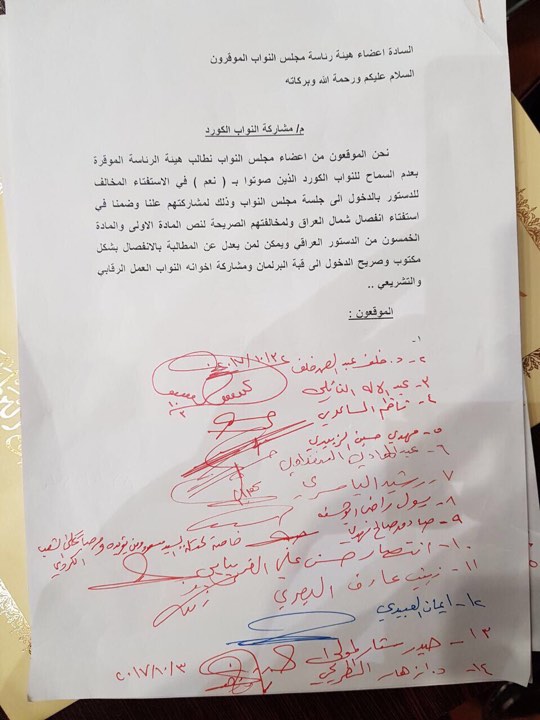 السادة اعضاء هيئة رئاسة مجلس النواب الموقرون
السلام عليكم ورحمة الله وبركاته
م/ مشاركة النواب الكورد
نحن الموقعون من اعضاء مجلس النواب نطالب هيئة الرئاسة الموقرة
بعدم السماح للنواب الكورد الذين صوتوا بـ ( نعم ) في الاستفتاء المخالف
للدستور بالدخول الى جلسة مجلس النواب وذلك لمشاركتهم علنا وضمنا في
استفتاء انفصال شمال العراق ولمخالفتهم الصريحة لنص المادة الاولى والمادة
الخمسون من الدستور العراقي ويمكن لمن يعدل عن المطالبة بالانفصال بشكل
مكتوب وصريح الدخول الى قبة البرلمان ومشاركة اخوانه النواب العمل الرقابي
والتشريعي ..
الموقعون :
١-
٢- د. خلف عبد الصمد خلف
٣- عبد الاله النائلي
٤- ناظم الساعدي
٥- مهدي حسين الزبيدي
٦- عبد الهادي
٧- رشيد الياسري
٨- رسول راضي
٩- صادق
١٠- انتصار حسن علي
١١- زينب عارف البصري
١٢- ايمان العبيدي
١٣- حيدر ستار المولى
١٤- د. ازهار الطريحي ٢٠١٧/١٠/٣